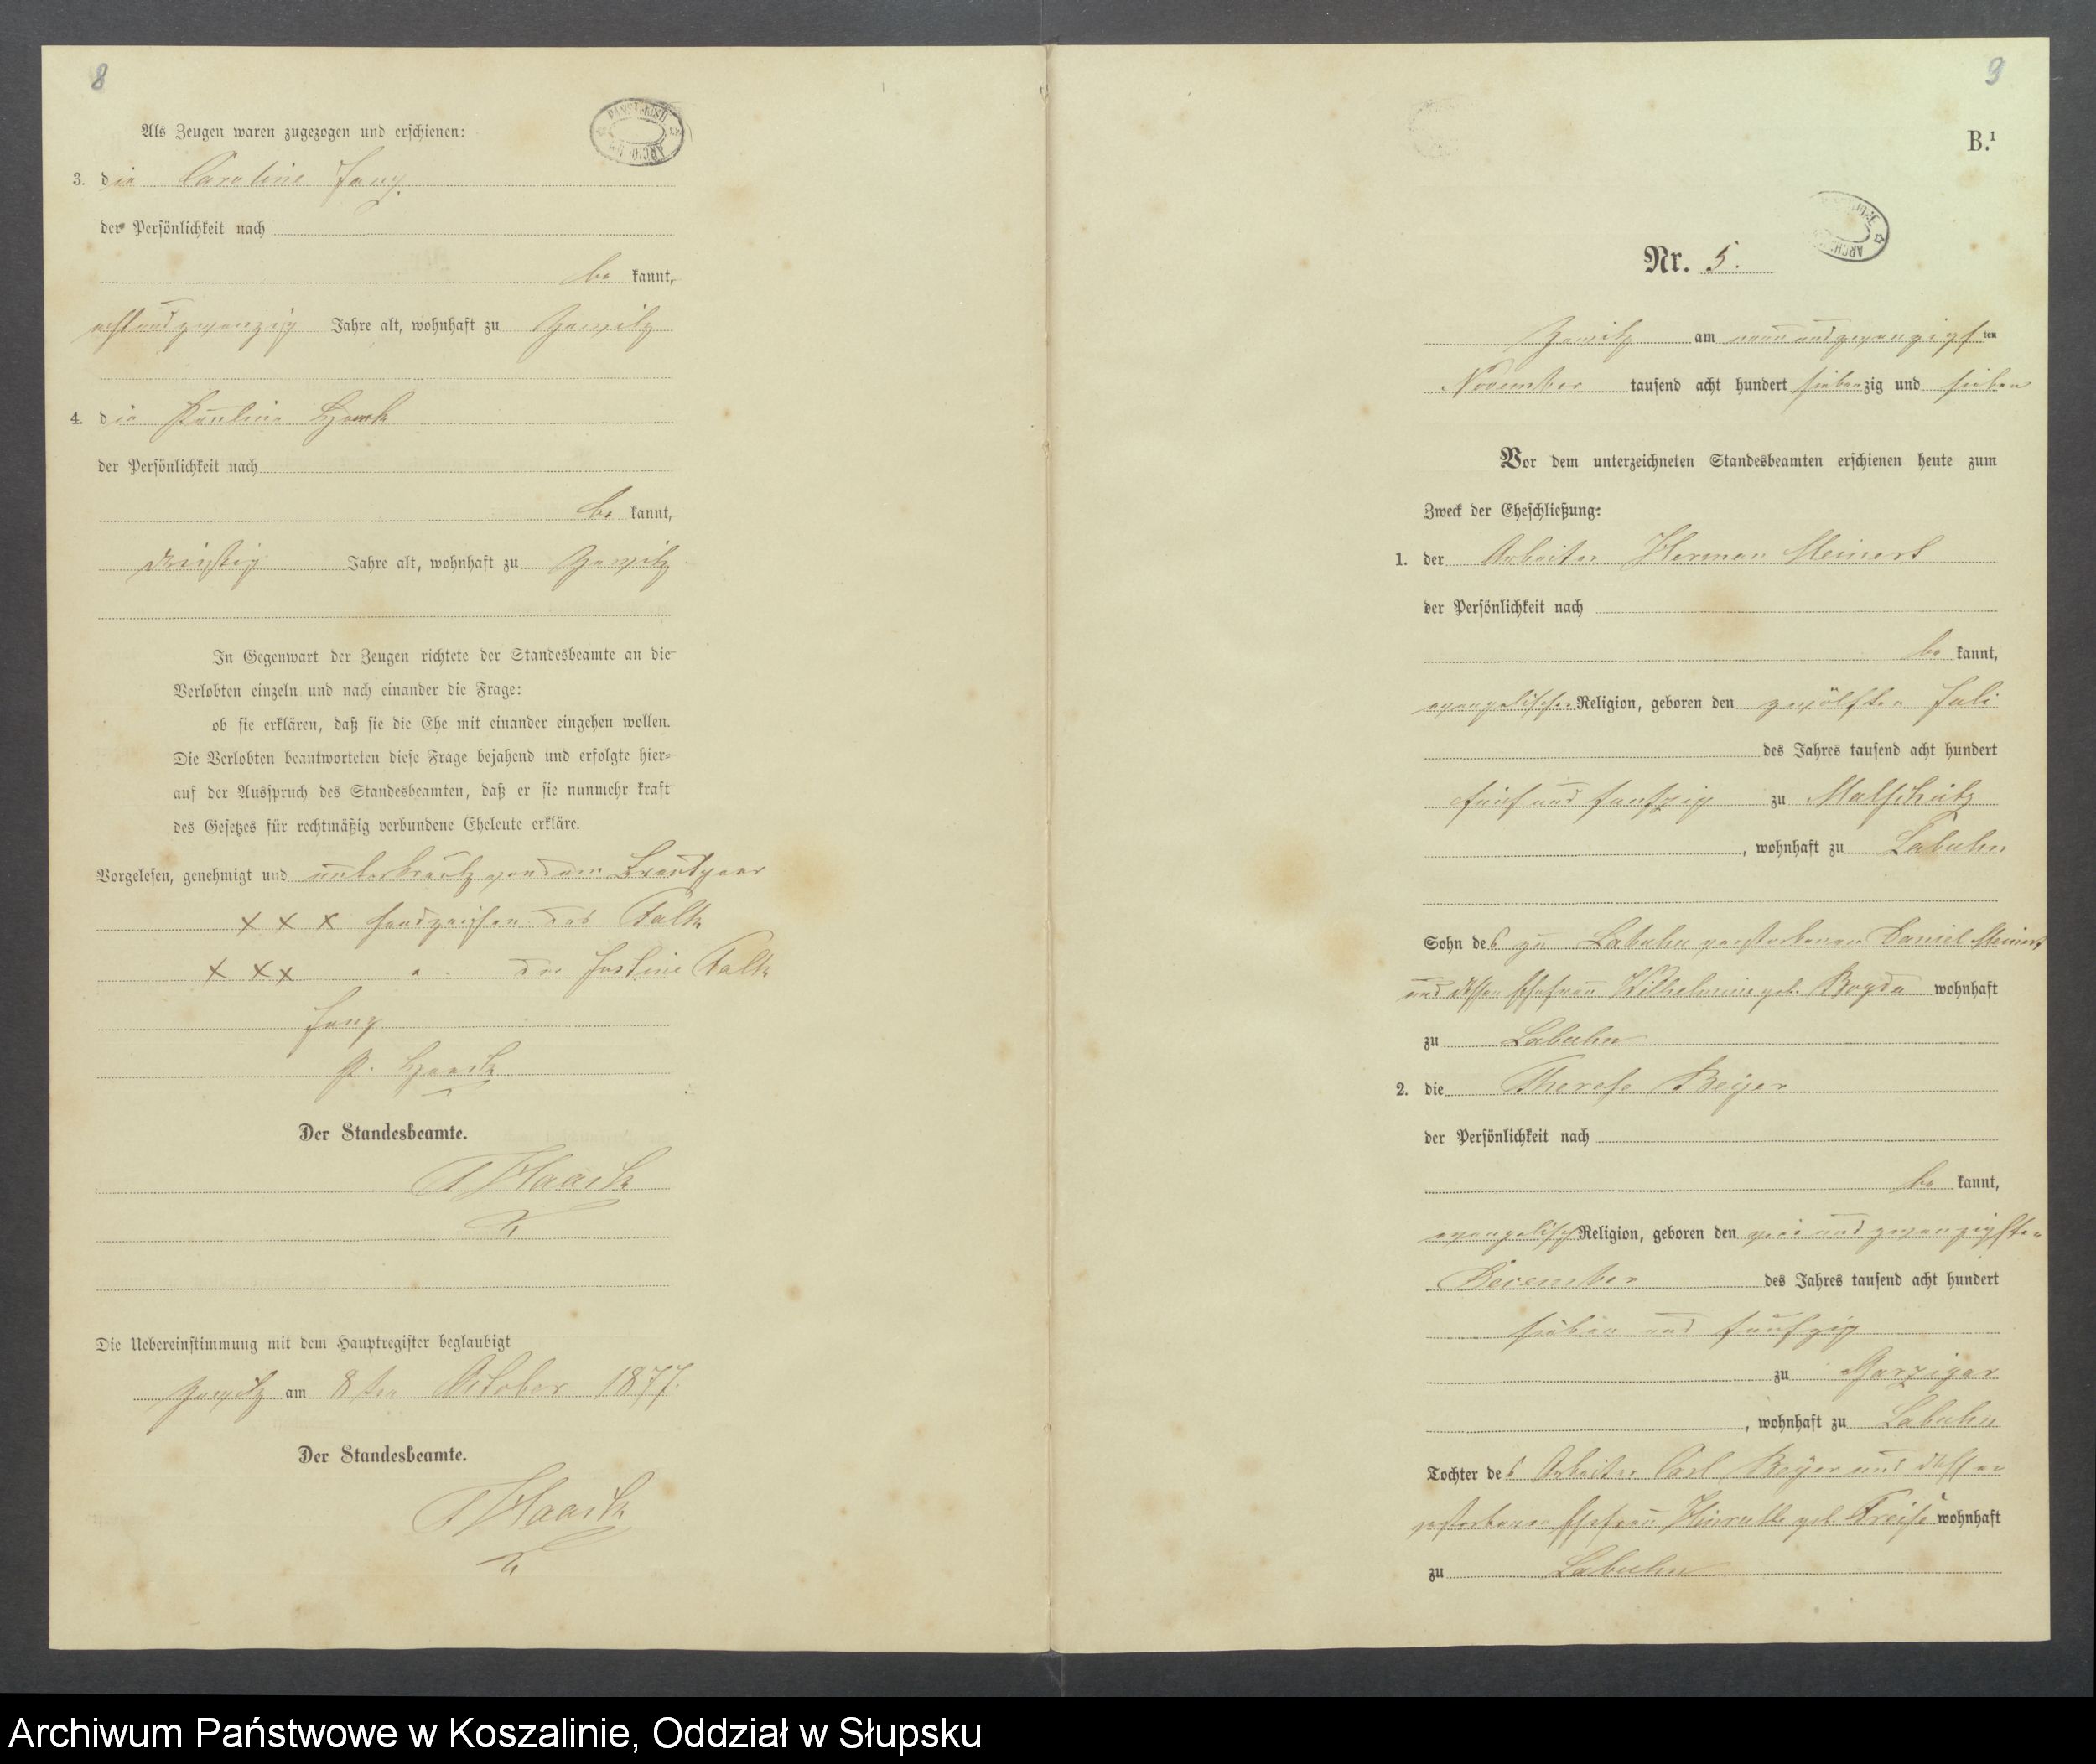 8
Als Zeugen waren zugezogen und erschienen:
3. die Caroline Janz
der Persönlichkeit nach
be kannt,
achtundzwanzig Jahre alt, wohnhaft zu Zewitz
4. die Pauline Haack
der Persönlichkeit nach
be kannt,
dreißig Jahre alt, wohnhaft zu Zewitz
In Gegenwart der Zeugen richtete der Standesbeamte an die
Verlobten einzeln und nach einander die Frage:
ob sie erklären, daß sie die Ehe mit einander eingehen wollen.
Die Verlobten beantworteten diese Frage bejahend und erfolgte hier-
auf der Ausspruch des Standesbeamten, daß er sie nunmehr kraft
des Gesetzes für rechtmäßig verbundene Eheleute erkläre.
Vorgelesen, genehmigt und unterkreutz von dem Brautpaar
x x x Handzeichen des Falk
x x x " der Justine Falk
Janz
P. Haack
Der Standesbeamte.
Haack
Die Uebereinstimmung mit dem Hauptregister beglaubigt
Zewitz am 8ten October 1877.
Der Standesbeamte.
Haack
9
B.¹
Nr. 5.
Zewitz am neunundzwanzigsten
November tausend acht hundert siebenzig und sieben
Vor dem unterzeichneten Standesbeamten erschienen heute zum
Zweck der Eheschließung:
1. der Arbeiter Herman Meinert
der Persönlichkeit nach
be kannt,
evangelischer Religion, geboren den zwölften Juli
des Jahres tausend acht hundert
fünf und funfzig zu Malschütz
, wohnhaft zu Labuhn
Sohn des zu Labuhn verstorbenen Daniel Meinert
und dessen Ehefrau Wilhelmine geb. Rogda wohnhaft
zu Labuhn
2. die Therese Beijer
der Persönlichkeit nach
be kannt,
evangelisch Religion, geboren den zwei und zwanzigsten
December des Jahres tausend acht hundert
sieben und funfzig
zu Garzigar
, wohnhaft zu Labuhn
Tochter des Arbeiter Carl Beijer und dessen
verstorbenen Ehefrau geb. wohnhaft
zu Labuhn
Archiwum Państwowe w Koszalinie, Oddział w Słupsku